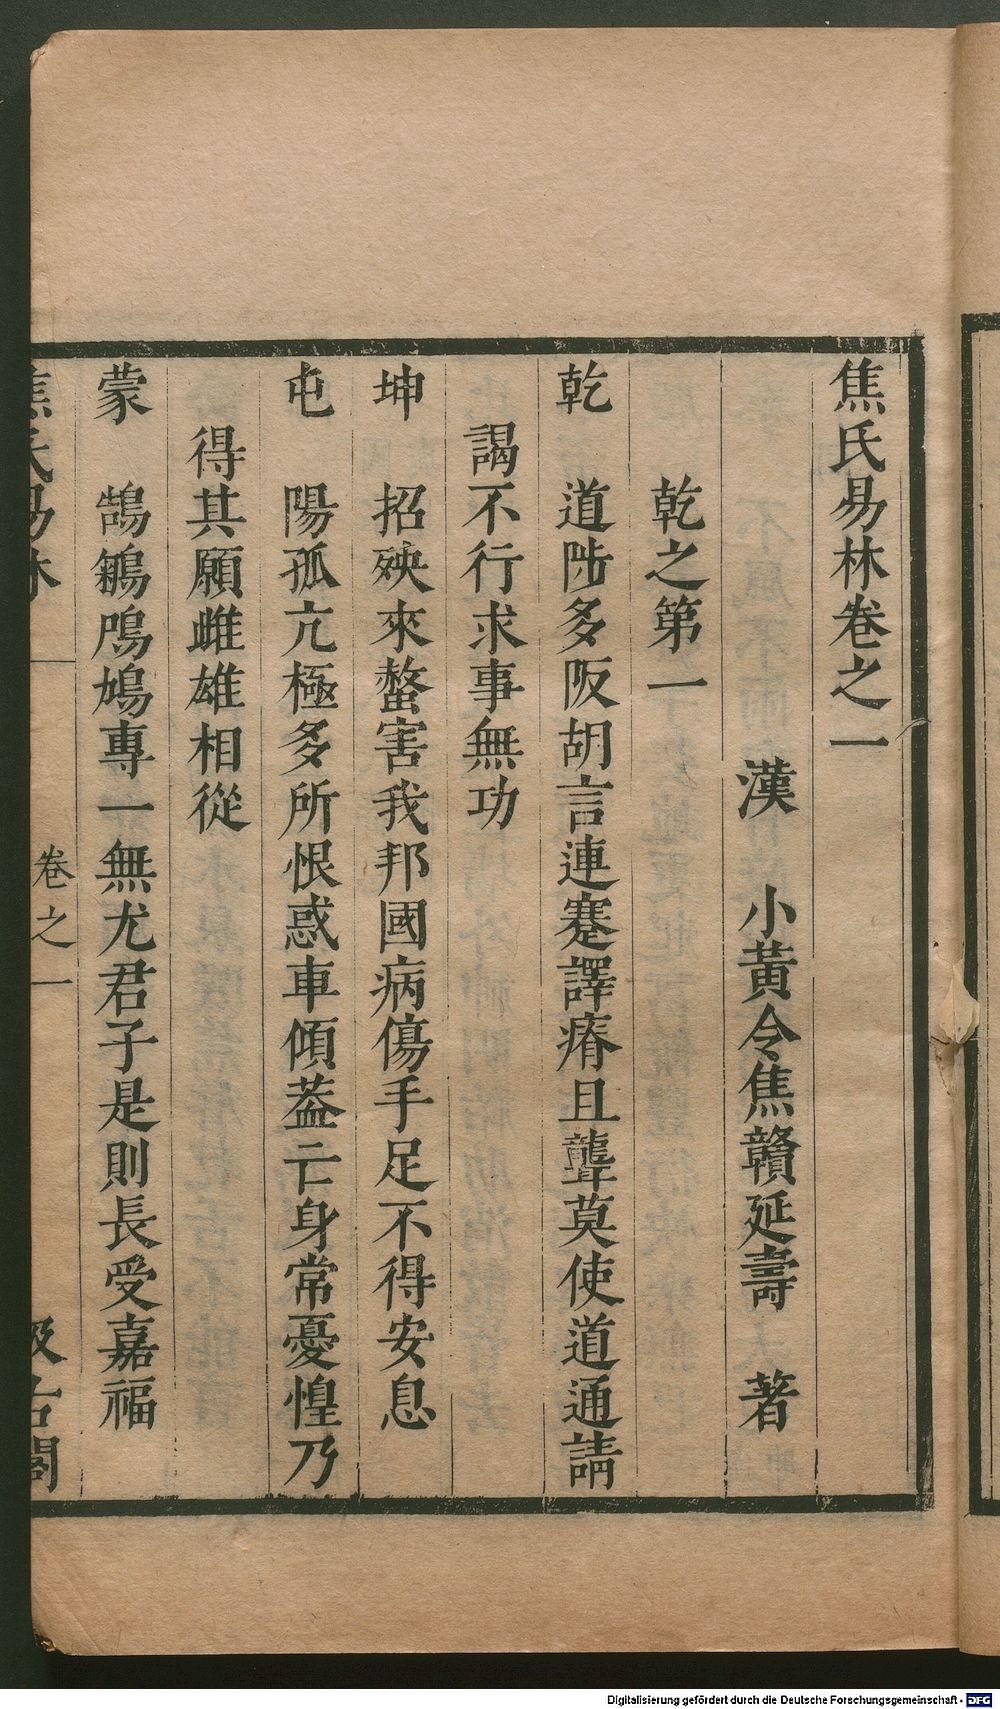 焦氏易林卷之一
漢　小黃令焦贛延壽　著
乾之第一
乾　道陟多阪胡言連蹇譯瘠且聾莫使道通請
謁不行求事無功
坤　招殃來螫害我邦國病傷手足不得安息
屯　陽孤亢極多所恨惑車傾葢亡身常憂惶乃
得其願雌雄相從
蒙　鵠鵴鳲鳩專一無尤君子是則長受嘉福
焦氏易林　卷之一　汲古閣
Digitalisierung gefördert durch die Deutsche Forschungsgemeinschaft - DFG